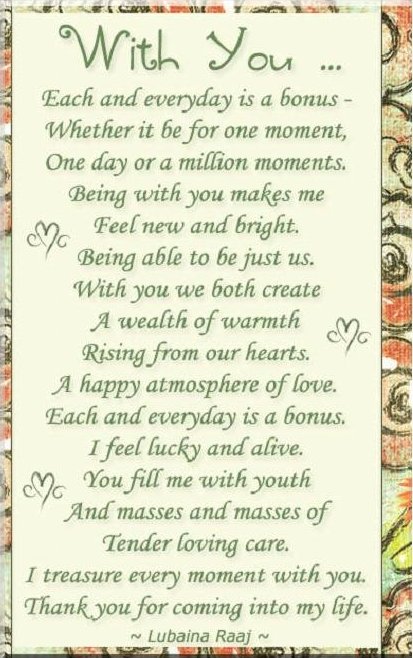 With You ...
Each and everyday is a bonus -
Whether it be for one moment,
One day or a million moments.
Being with you makes me
Feel new and bright.
Being able to be just us.
With you we both create
A wealth of warmth
Rising from our hearts.
A happy atmosphere of love.
Each and everyday is a bonus.
I feel lucky and alive.
You fill me with youth
And masses and masses of
Tender loving care.
I treasure every moment with you.
Thank you for coming into my life.
~ Lubaina Raaj ~